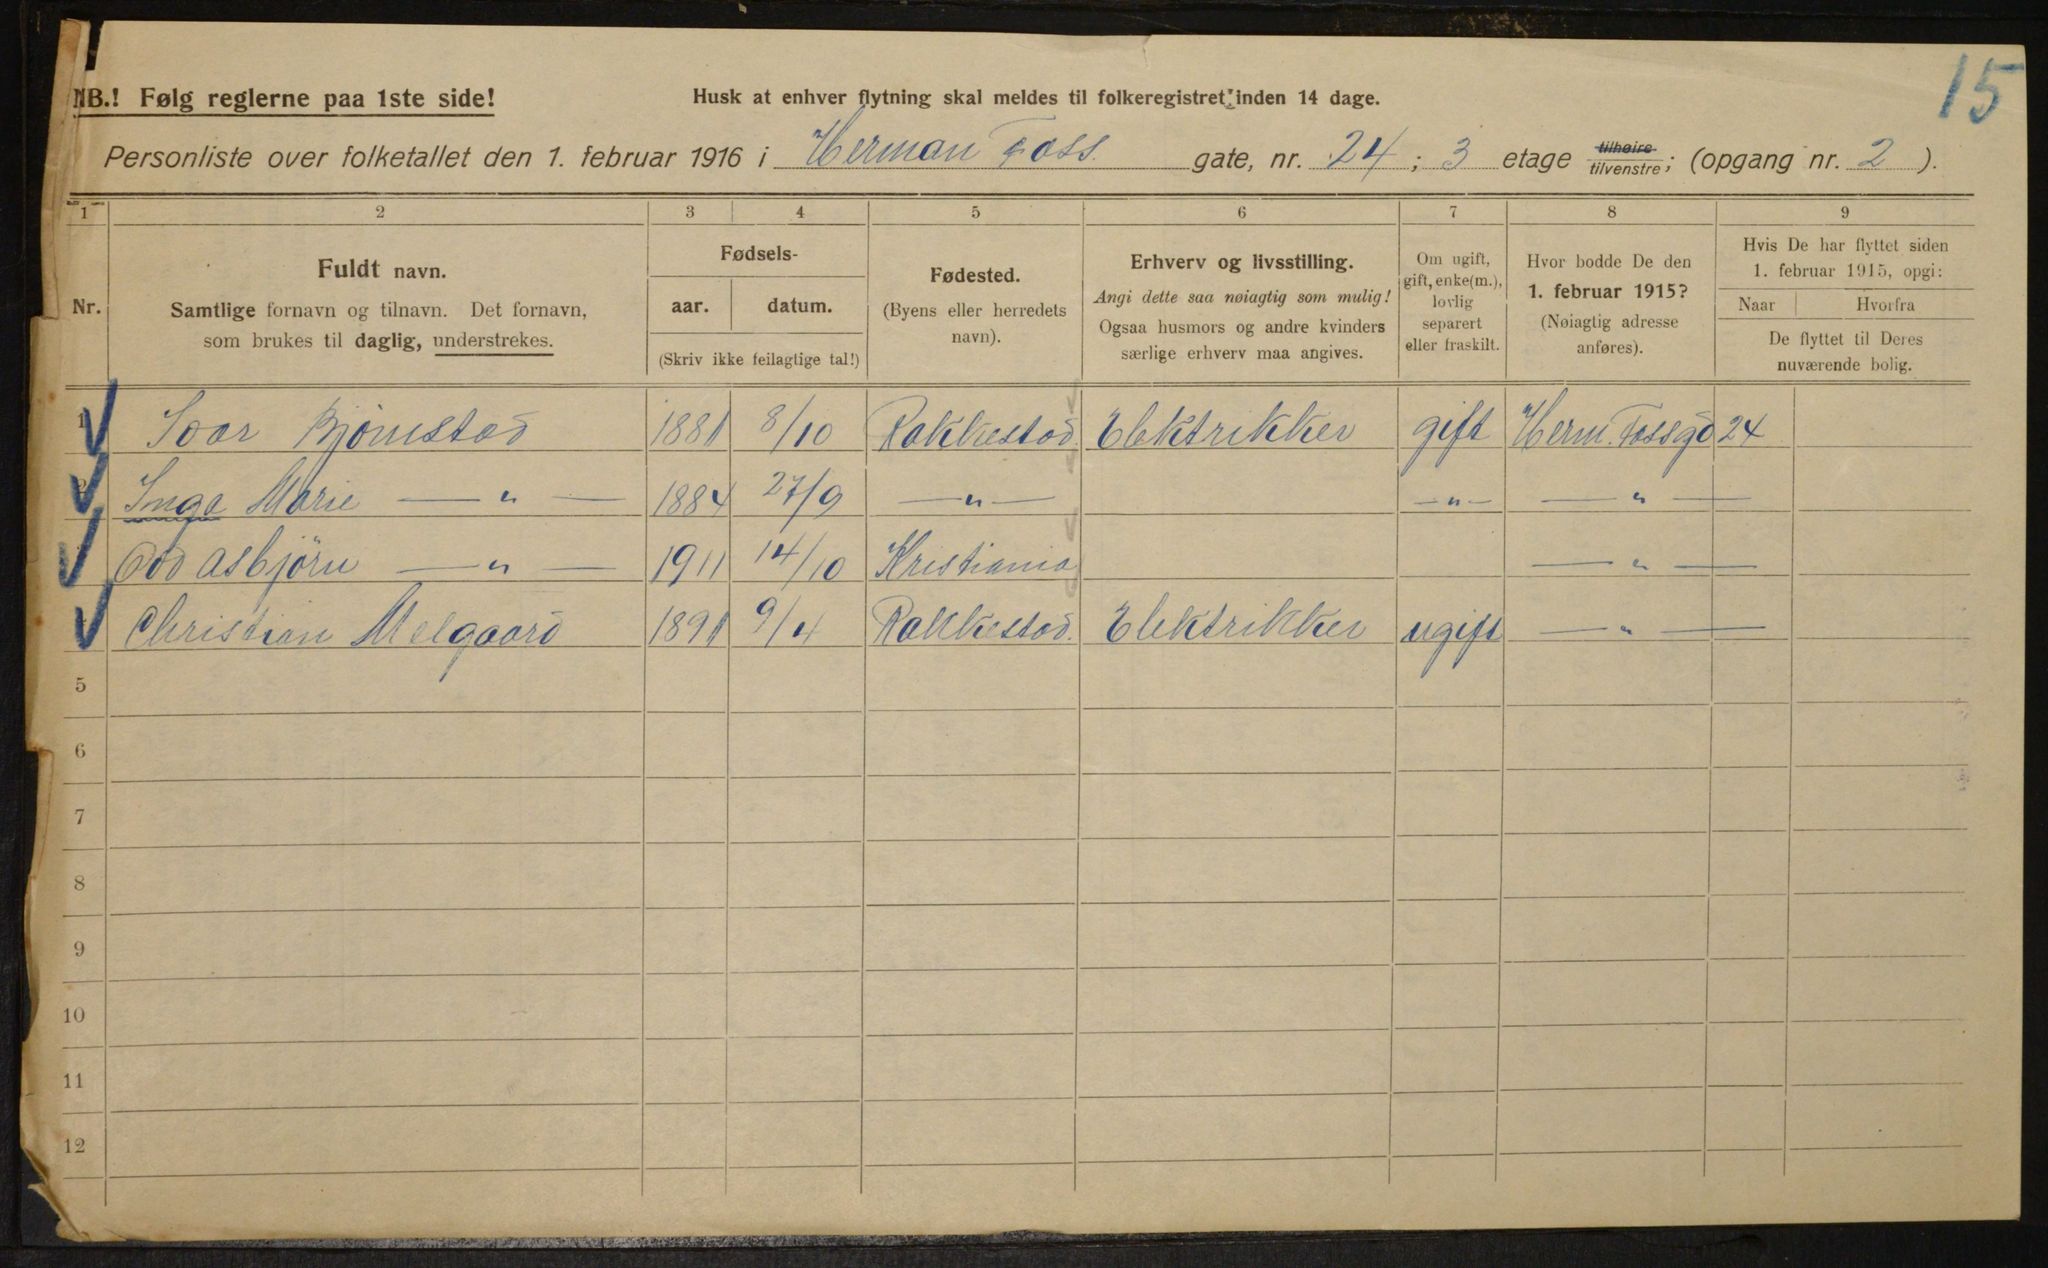 15
NB.! Følg reglerne paa 1ste side!
Husk at enhver flytning skal meldes til folkeregistret inden 14 dage.
Personliste over folketallet den 1. februar 1916 i Herman Foss gate, nr. 24 ; 3 etage tilhøire tilvenstre ; (opgang nr. 2 ).
1 2 3 4 5 6 7 8 9
Nr.
Fuldt navn.
Samtlige fornavn og tilnavn. Det fornavn,
som brukes til daglig, understrekes.
Fødsels-
aar. datum.
(Skriv ikke feilagtige tal!)
Fødested.
(Byens eller herredets
navn).
Erhverv og livsstilling.
Angi dette saa nøiagtig som mulig!
Ogsaa husmors og andre kvinders
særlige erhverv maa angives.
Om ugift,
gift, enke(m.),
lovlig
separert
eller fraskilt.
Hvor bodde De den
1. februar 1915?
(Nøiagtig adresse
anføres).
Hvis De har flyttet siden
1. februar 1915, opgi:
Naar Hvorfra
De flyttet til Deres
nuværende bolig.
1 Ivar Bjørnstad 1881 8/10 Rakkestad. Elektrikker gift Herm. Fossgd 24
2 Inga Marie — " — 1884 27/9 — " — — " — — " —
Odd Asbjörn — " — 1911 14/10 Kristiania — " —
Christian Melgaard 1891 9/4 Rakkestad. Elektrikker ugift — " —
5
6
7
8
9
10
11
12